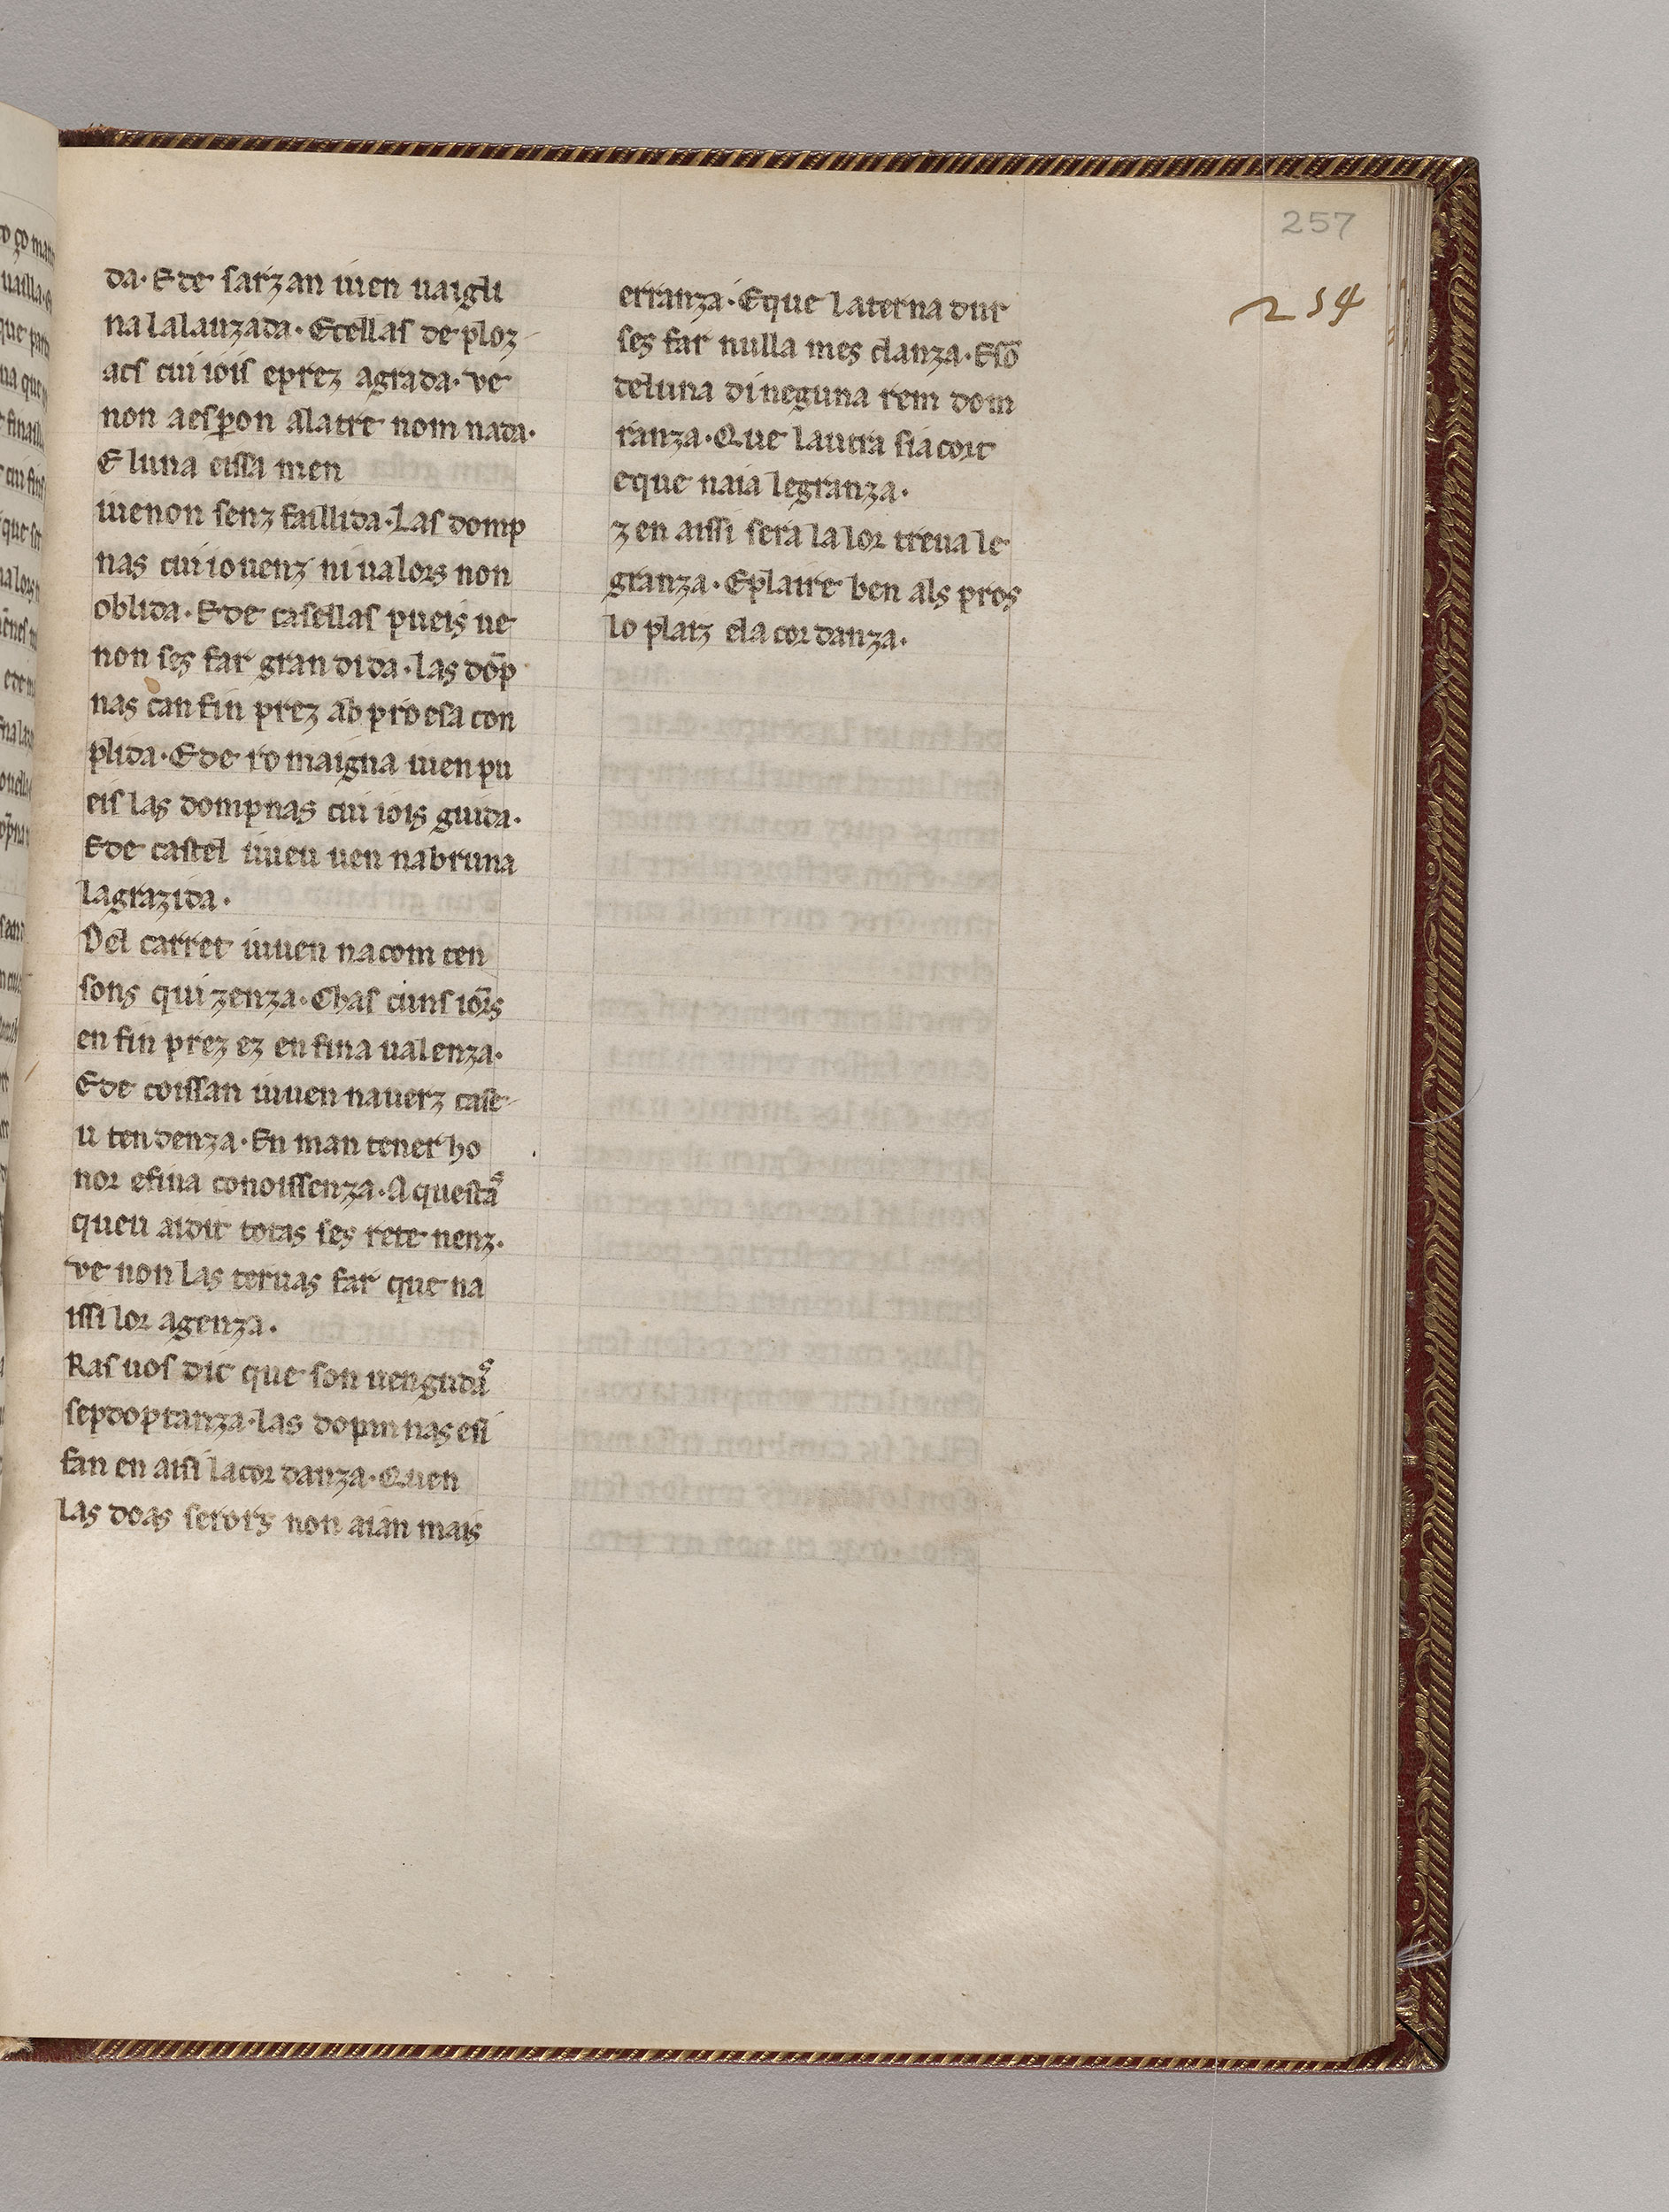 257
254
da. E de sarzan uen naigli
na lalauzada. Et ellas de ploz
acs cui iois e prez agrada. ve
non aespon alatre nom nada.
E luna eissa men
uienon senz faillida. Las domp
nas cui iouenz ni ualors non
oblida. E de casellas pueis ue
non ses far gran dida. las dōp
nas can fin prez ab proesa con
plida. E de romaigna uien pu
eis las dompnas cui iois guida.
E de castel uueu uen nabruna
lagrazida.
Del carret iuuen nacom ten
sons qui zenza. Chas cuns iors
en fin prez ez en fina ualenza.
E de coissan iuuen nauerz case
u tendenza. En man tener ho
nor efina conoissenza. A questas
queu aidit totas ses rete nenz.
ve non las teruas far que na
issi lor agenza.
Ras uos dic que son uengudas
sepdoptanza. las dopm nas esi
fan en aisi lacordanza. Quen
las doas serors non aian mais
erranza. E que laterna dur
ses far nulla mes clanza. Esō
teluna di neguna rem dom
ranza. Que lautra sia cort
e que naia legranza.
z en aissi sera la lor treua le
granza. E plaire ben als pros
lo platz ela cordanza.